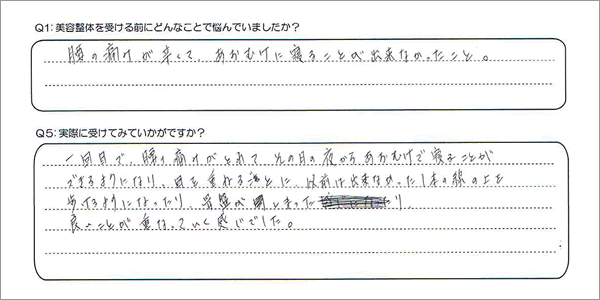 Q1:美容整体を受ける前にどんなことで悩んでいましたか?
腰の痛みが辛くて、あおむけに寝ることが出来なかったこと。
Q5:実際に受けてみていかがですか?
一回目で、腰の痛みがとれて、その日の夜からあおむけで寝ることが
できるようになり、回を重ねるごとに、以前は出来なかった1本の線の上を
歩けるようになったり、骨盤が閉しまったり、
良いことが重なっていく感じでした。